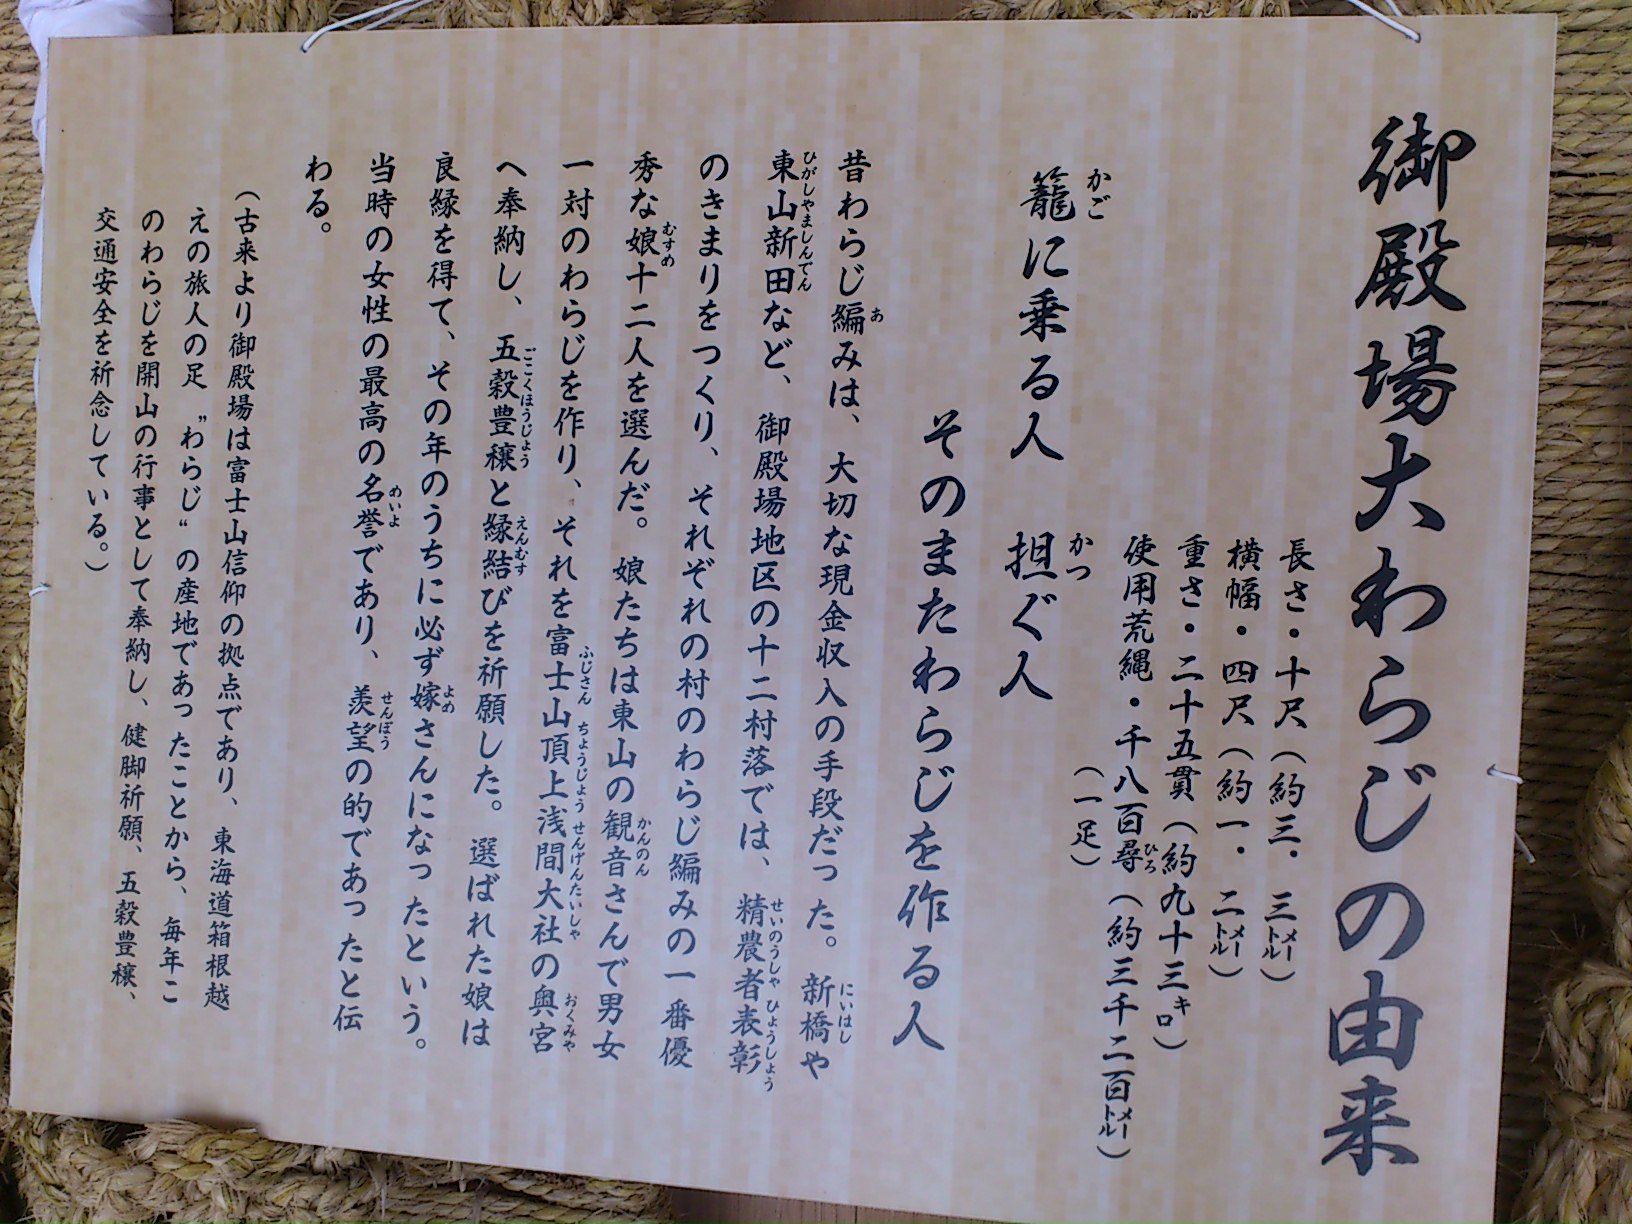 御殿場大わらじの由来
長さ・十尺（約三．三メートル）
横幅・四尺（約一．二メートル）
重さ・二十五貫（約九十三キロ）
使用荒縄・千八百尋（約三千二百メートル）
（一足）
籠に乗る人　担ぐ人
そのまたわらじを作る人
昔わらじ編みは、大切な現金収入の手段だった。新橋や
東山新田など、御殿場地区の十二村落では、精農者表彰
のきまりをつくり、それぞれの村のわらじ編みの一番優
秀な娘十二人を選んだ。娘たちは東山の観音さんで男女
一対のわらじを作り、それを富士山頂上浅間大社の奥宮
へ奉納し、五穀豊穣と縁結びを祈願した。選ばれた娘は
良縁を得て、その年のうちに必ず嫁さんになったという。
当時の女性の最高の名誉であり、羨望の的であったと伝
わる。
（古来より御殿場は富士山信仰の拠点であり、東海道箱根越
えの旅人の足〝わらじ〟の産地であったことから、毎年こ
のわらじを開山の行事として奉納し、健脚祈願、五穀豊穣、
交通安全を祈念している。）